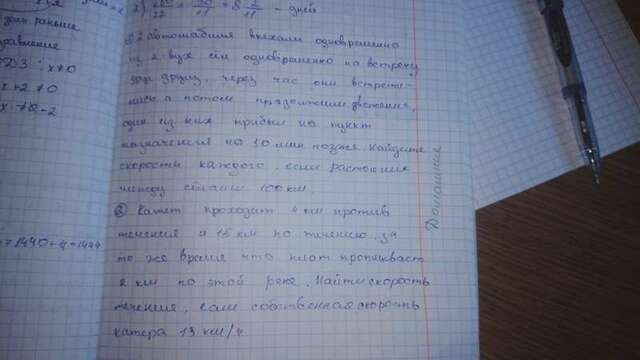 дней
2 автомобиля выехали одновременно
из 2-вух сёл одновременно на встречу
друг другу, через час они встрети-
лись а потом продолжили движение,
один из них прибыл на пункт
назначения на 50 мин позже. Найдите
скорость каждого, если растояние
между сёлами 100 км.
② Катет проходит 4 км против
течения и 15 км по течению за
то же время что плот проплывает
2 км по этой реке. Найти скорость
течения, если собственная скорость
катера 13 км/ч
дим раньше
равнение
x+2≠0
x≠-2
=1440+4=1444
Домашняя